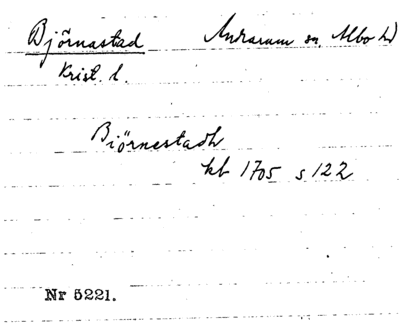 Björnastad Andrarum sn, Albo hd
Krist. l.
Biörnestadh
kb 1705 s 122
Nr 5221.